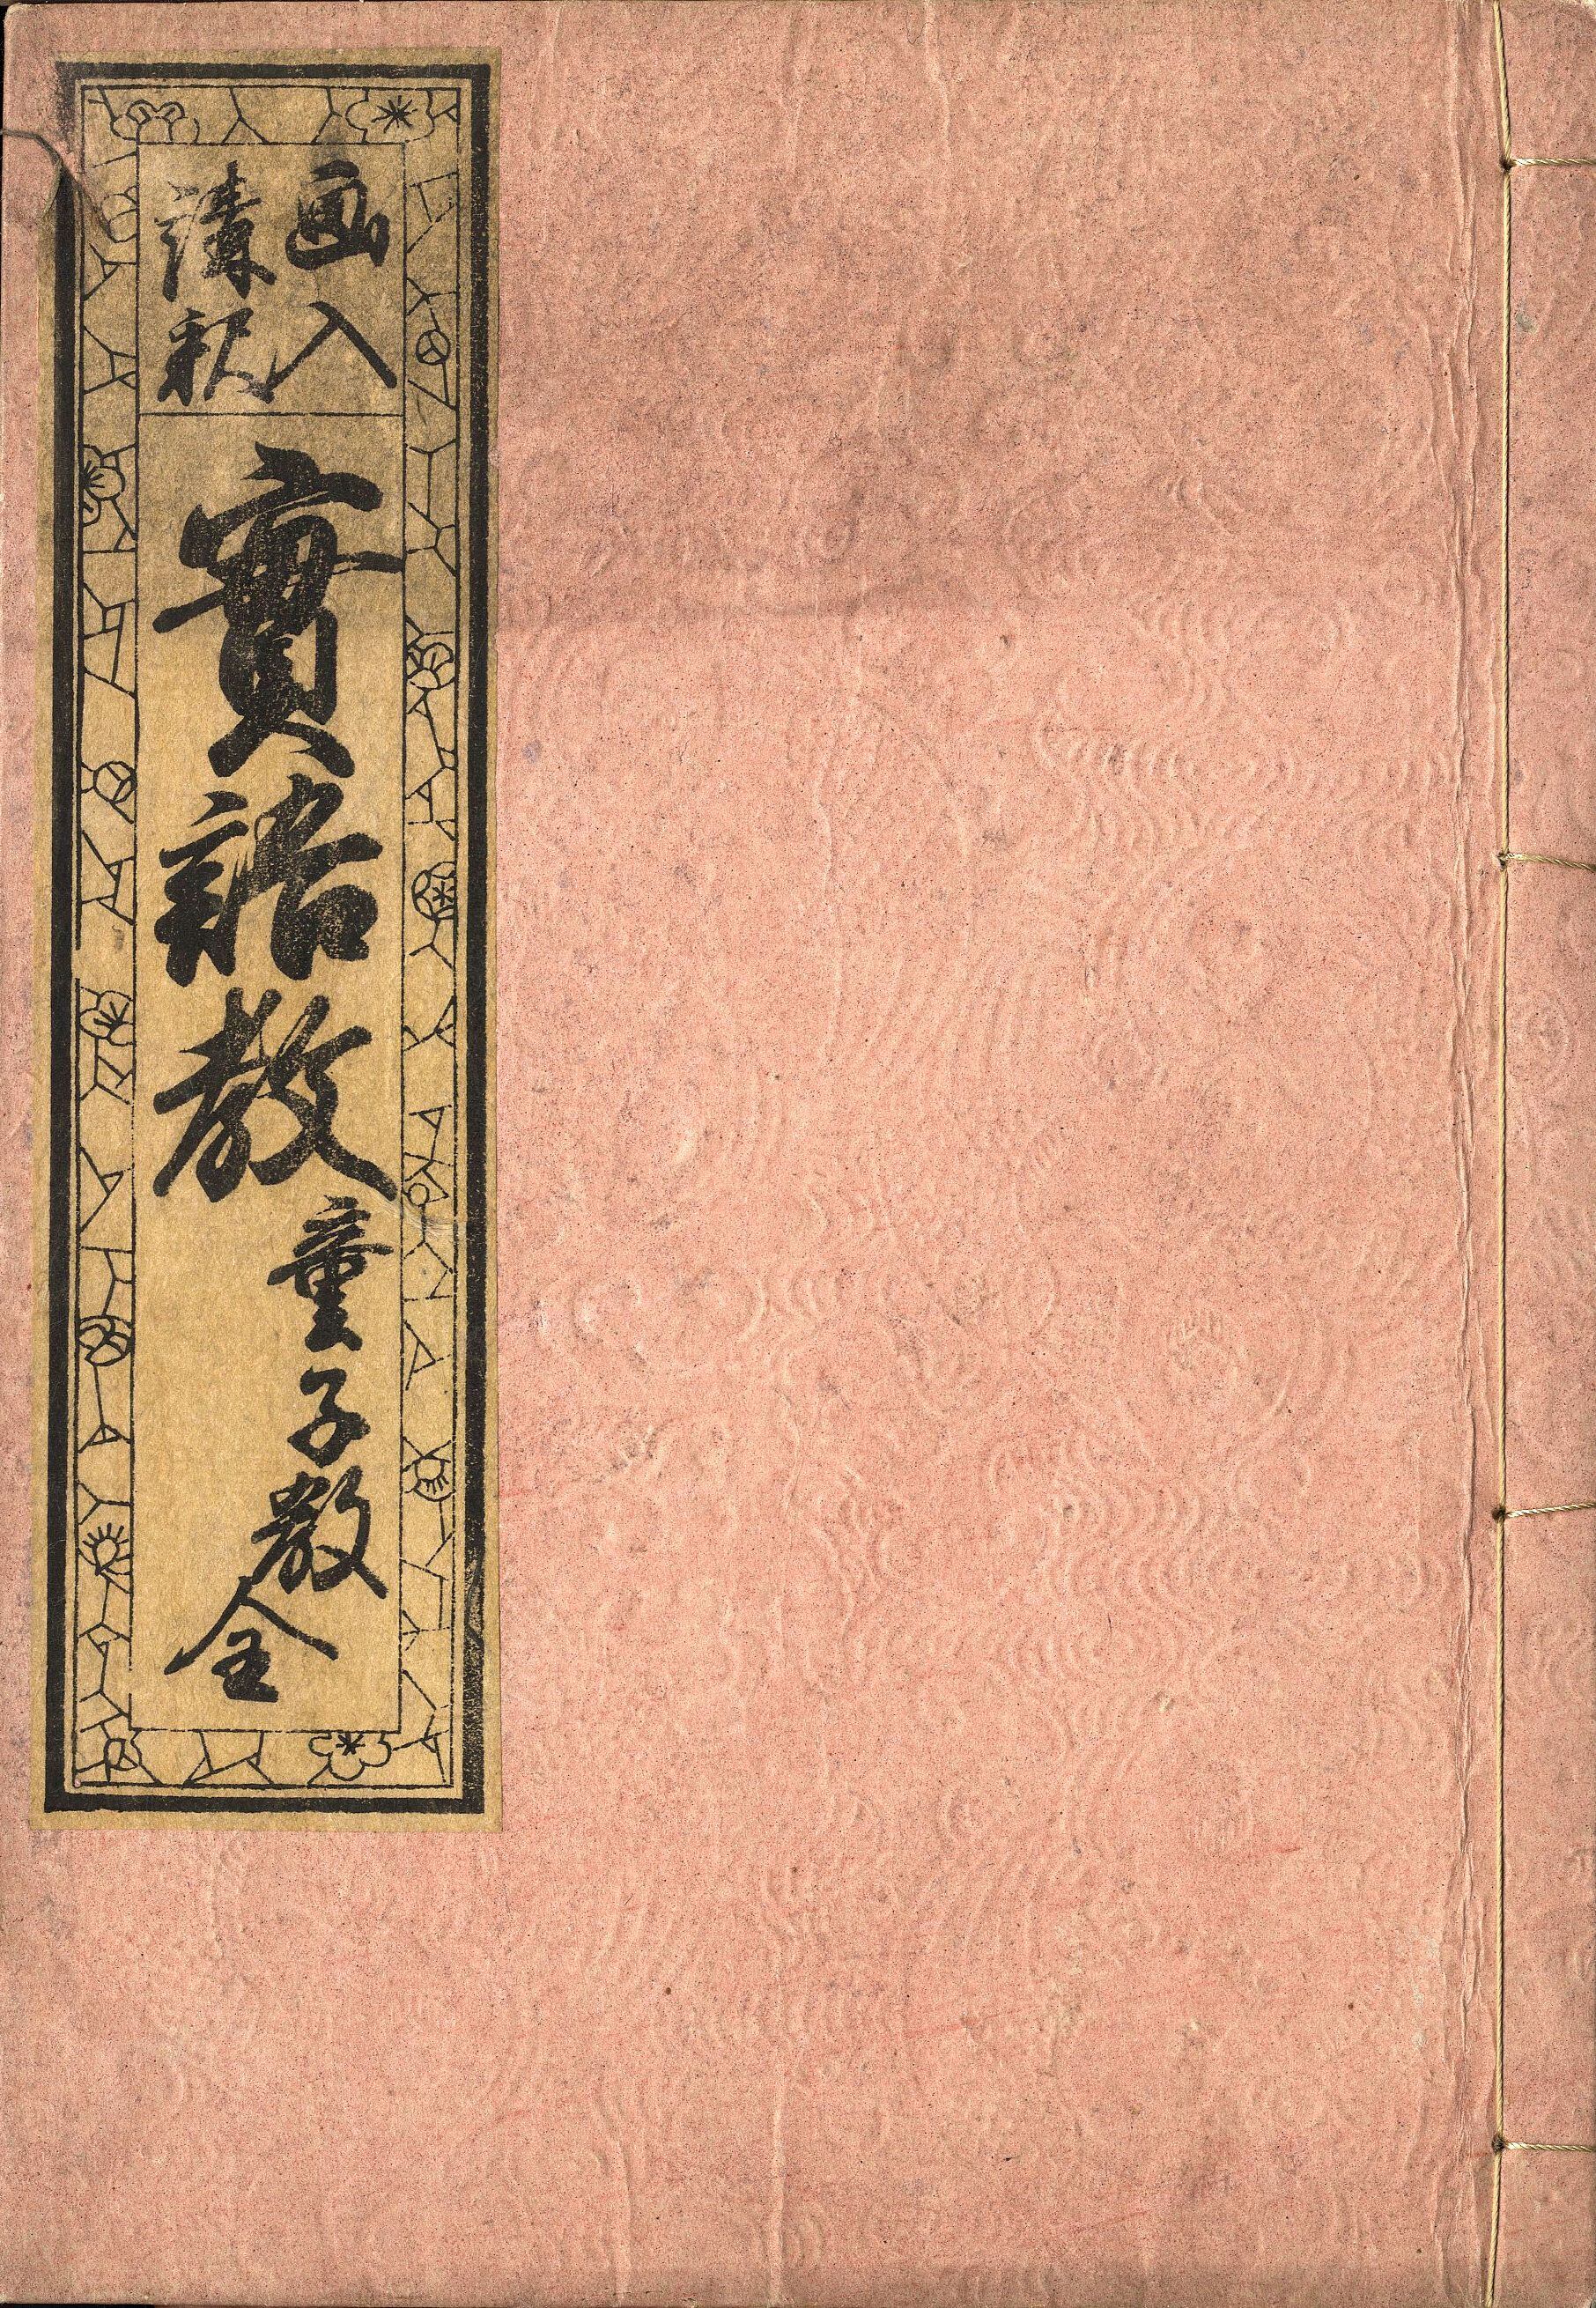 画入
講釈
實語教
童子教
全